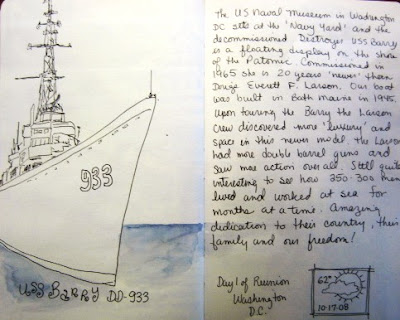 933
USS BARRY DD-933
The US Naval Museum in Washington
DC sits at the 'Navy Yard' and the
decommissioned Destroyer USS Barry
is a floating display on the shore
of the Patomic. Commissioned in
1965 she is 20 years 'newer' than
Doug's Everett F. Larson. Our boat
was built in Bath Maine in 1945.
Upon touring the Barry the Larson
crew discovered more 'luxury' and
space in this newer model. The Larson
had more double barrel guns and
saw more action over all. Still quite
interesting to see how 350-300 men
lived and worked at sea for
months at a time. Amazing
dedication to their country, their
family and our freedom!
Day 1 of Reunion
Washington
D.C.
62°
10-17-08